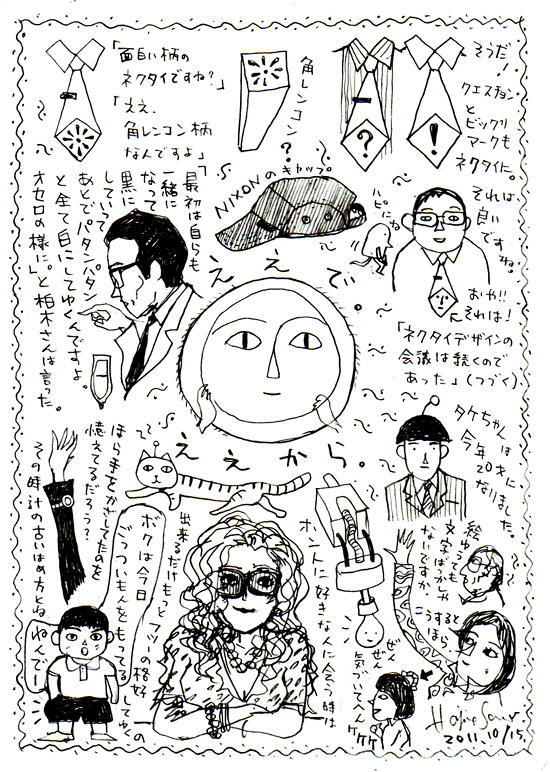 「面白い柄の
ネクタイですね？」
「ええ、
角レンコン柄
なんですよ」
角レンコン？
そうだ！
クエスチョン
と
ビックリ
マークも
ネクタイに。
それは、
良い
ですね。
おや!!
それは！
「ネクタイデザインの
会議は続くので
あった」(つづく)
NIXONのキャップ
ハッピーにね
「最初は自らも
一緒に
なって
黒に
していって
あとでパタンパタン
と全て白にしてゆくんですよ。
オセロの様に。」と柏木さんは言った。
ええで。
ええから。
タケちゃんは
今年20才に
なりました。
ほら手をかざしてたのを
憶えてるだろう？
その時計の古いはめ方とね
ねんでー
ボクは今日
ごっついもんをもってる
出来るだけもっとアツーの格好
してゆくの
ホントに好きな人に会う時は
ぜんぜん
気づいてへん
ケケケ
絵やっても
文字ばっかり
ないですか
こうすると
ほら、
2011.10/15